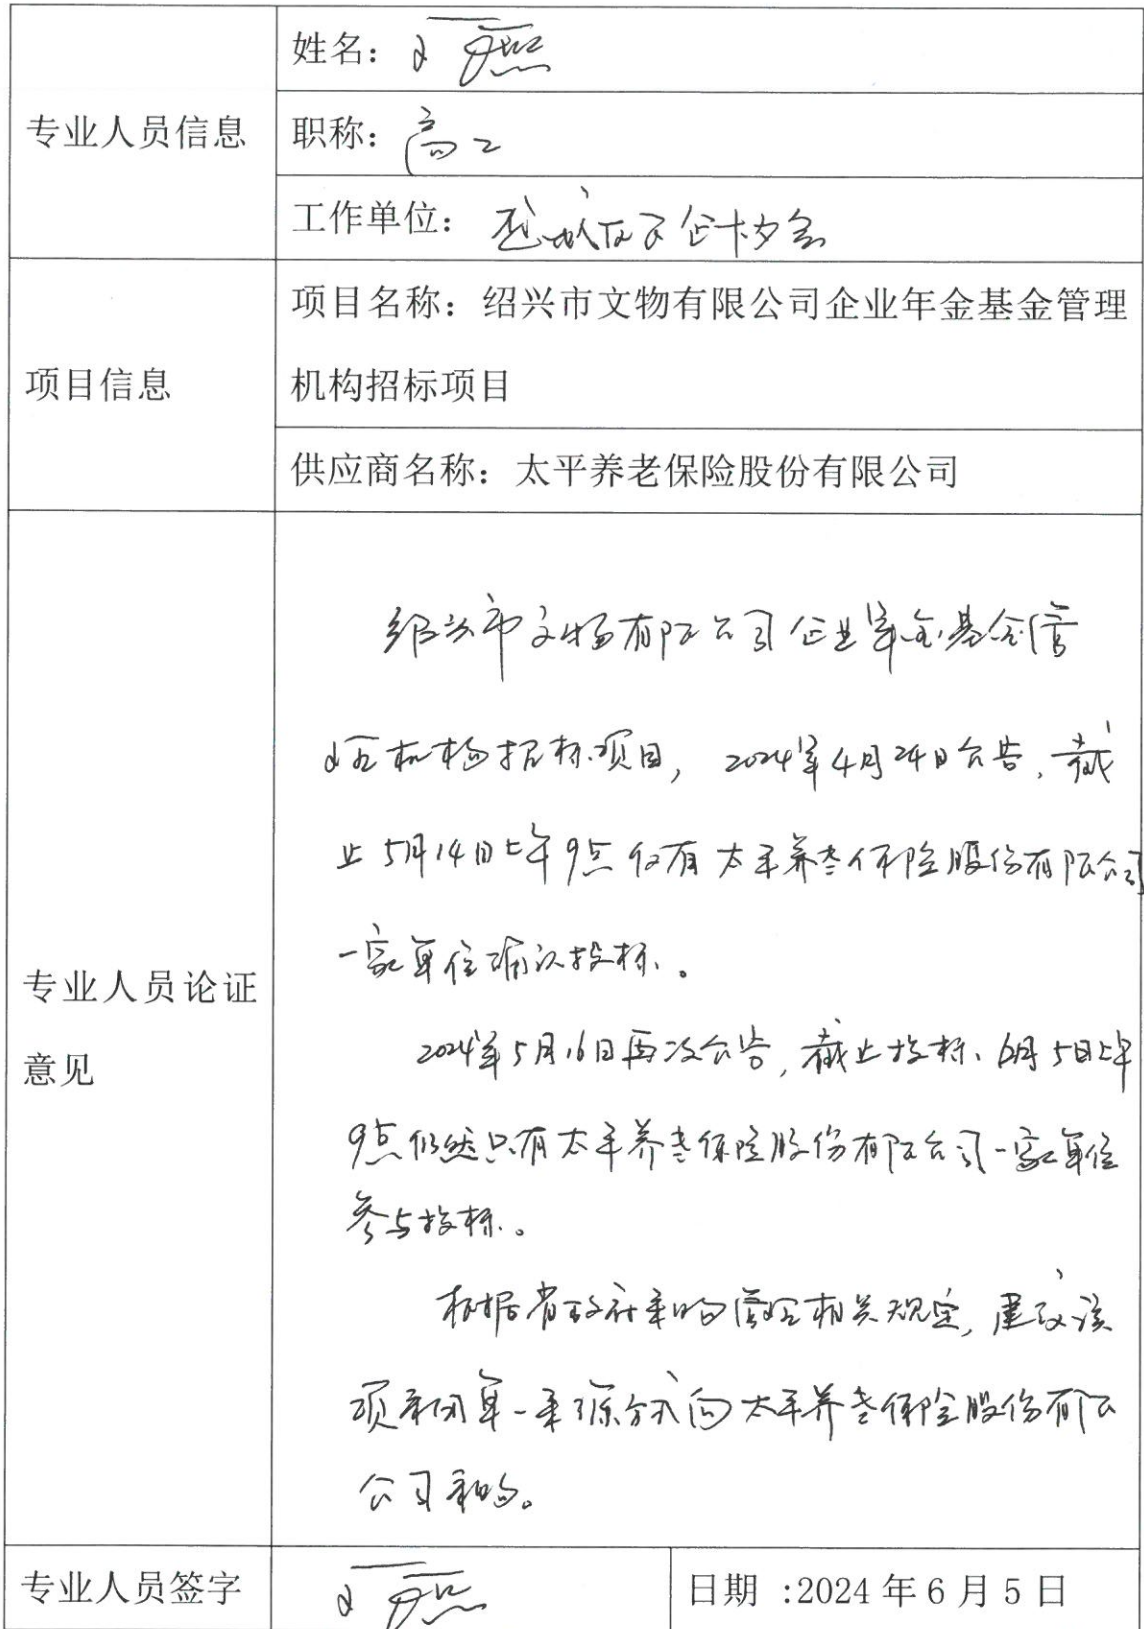 专业人员信息
姓名：
职称：高工
工作单位：越城区 企 协会
项目信息
项目名称：绍兴市文物有限公司企业年金基金管理
机构招标项目
供应商名称：太平养老保险股份有限公司
专业人员论证
意见
绍兴市文物有限公司企业年金基金管
理机构招标项目，2024年4月24日公告，截
止5月14日上午9点仅有太平养老保险股份有限公司
一家单位确认投标。
2024年5月16日再次公告，截止投标、6月5日上午
9点仍然只有太平养老保险股份有限公司一家单位
参与投标。
根据省政府采购管理相关规定，建议该
项采用单一来源方式向太平养老保险股份有限
公司采购。
专业人员签字
日期：2024年6月5日